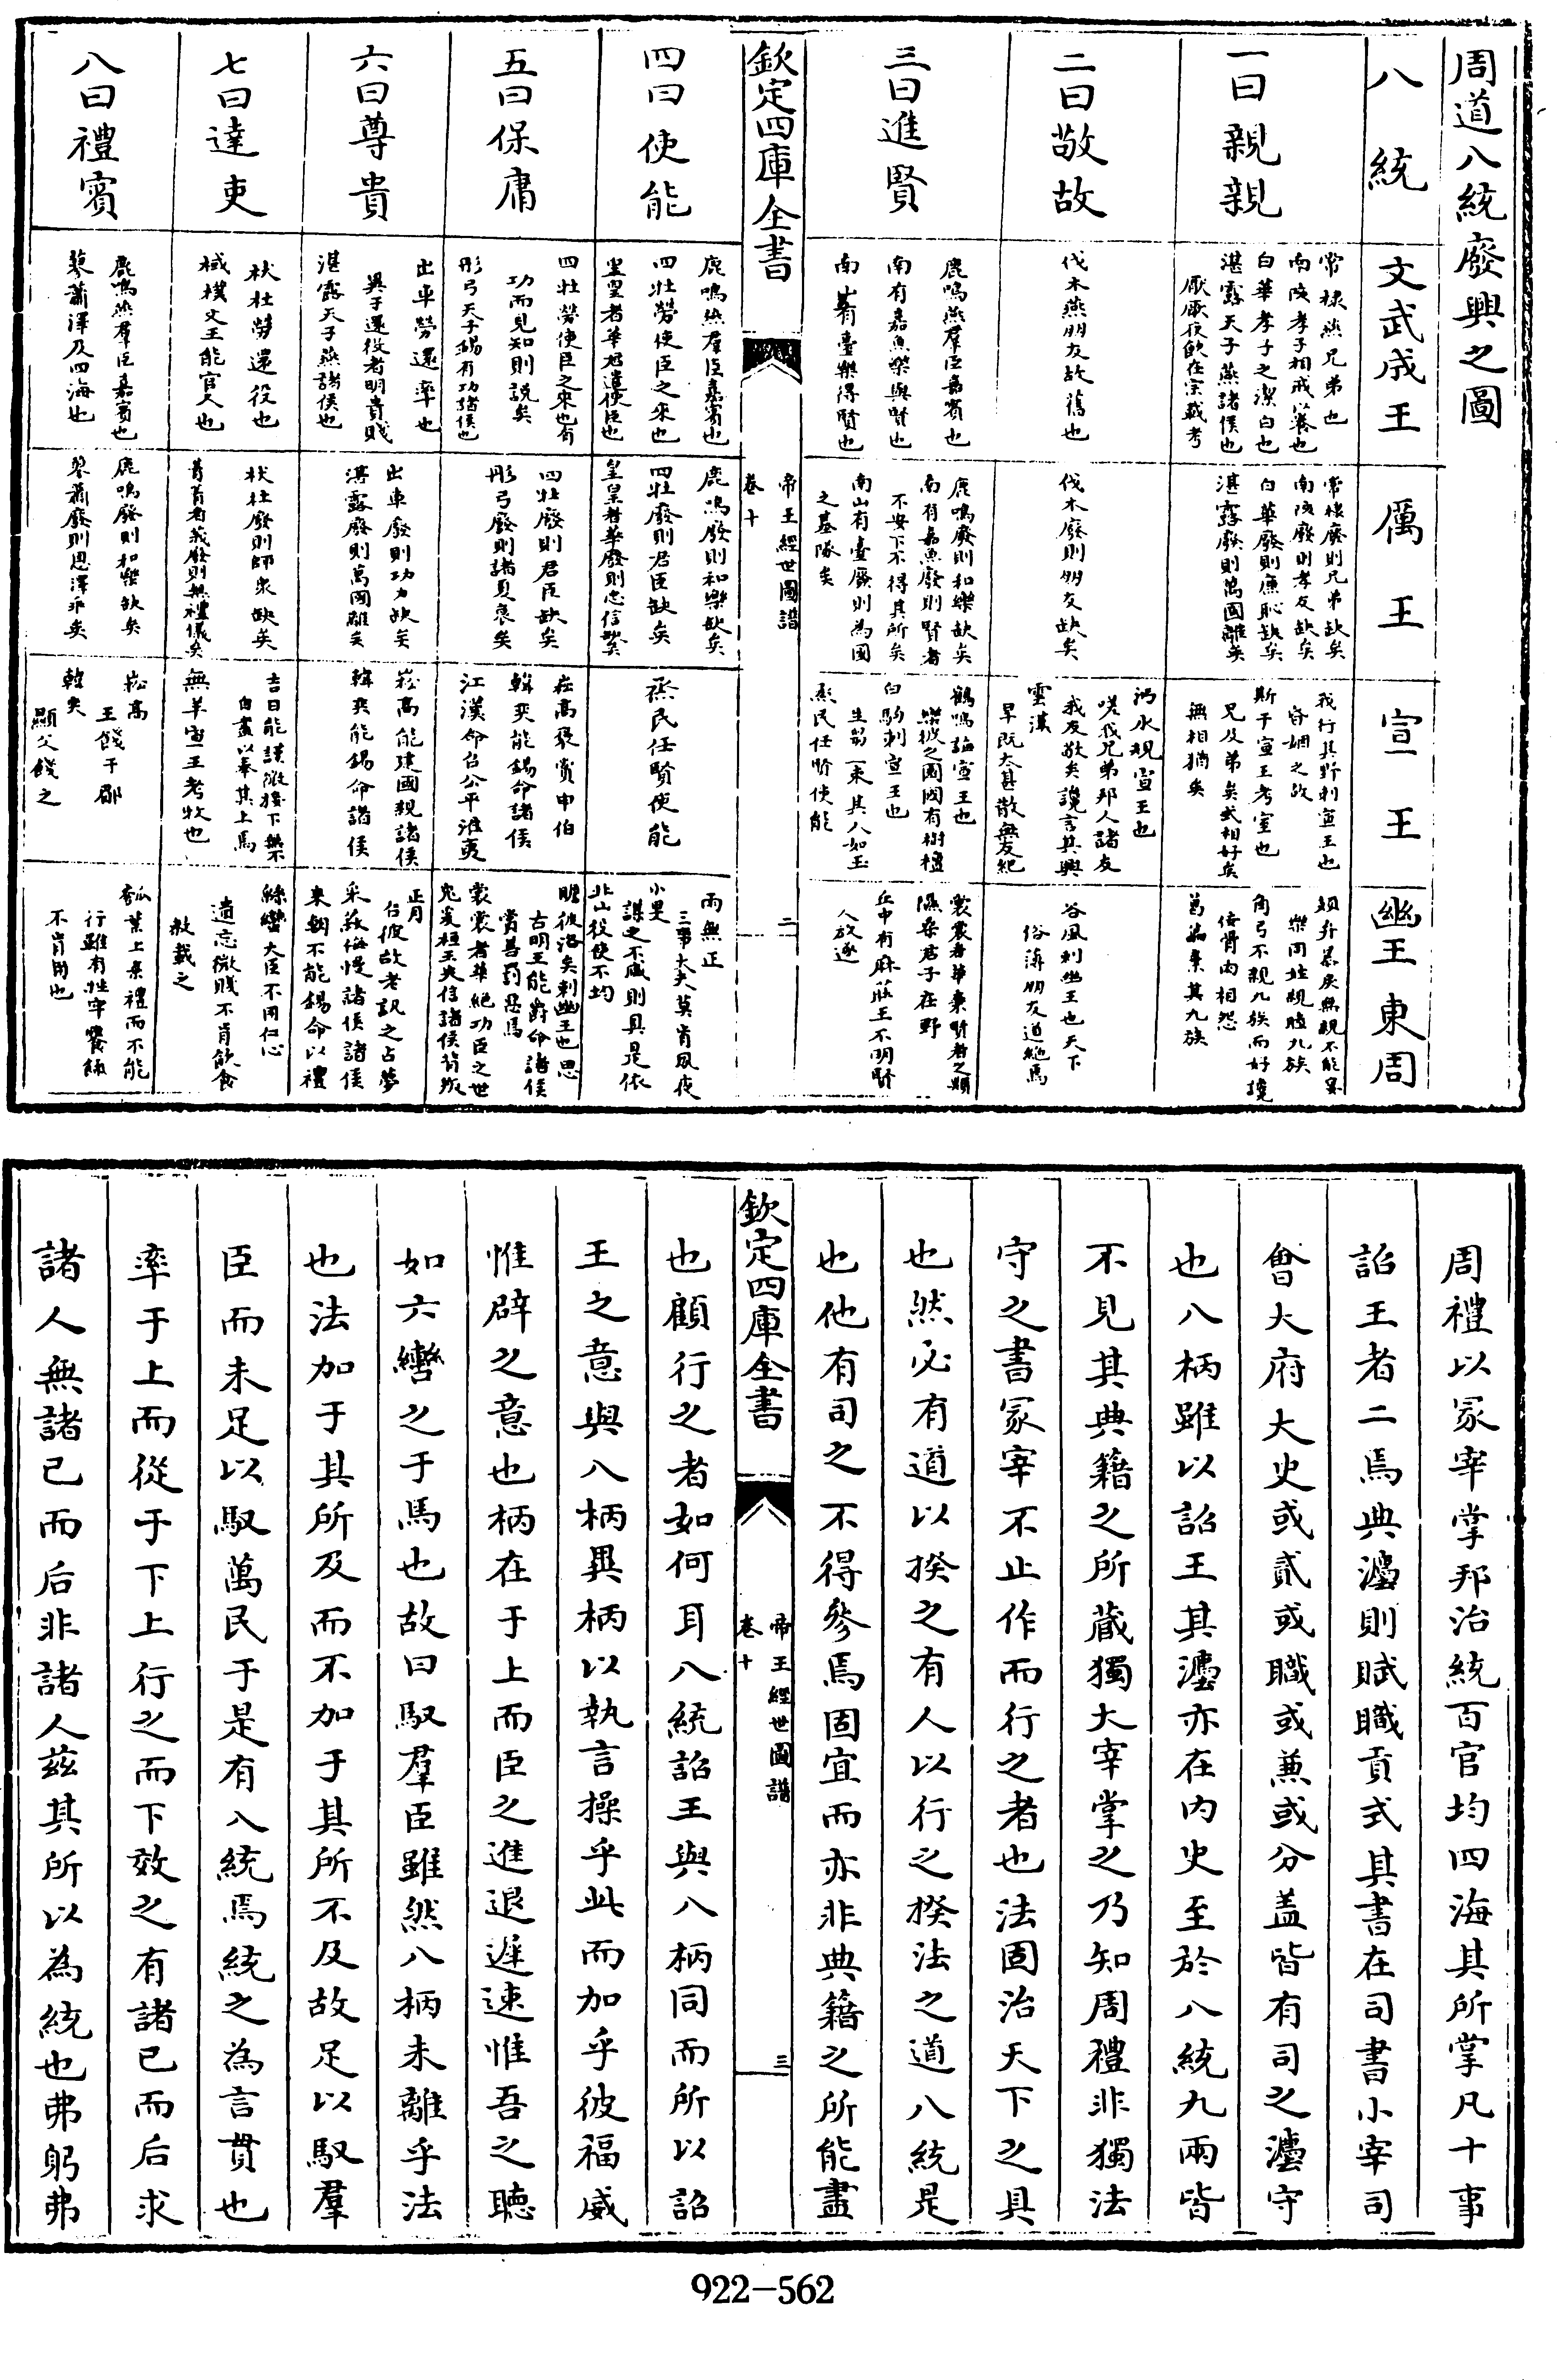 周道八統廢興之圖
八統
文武成王
厲王
宣王
幽王東周
一曰親親
常棣燕兄弟也
南陔孝子相戒以養也
白華孝子之潔白也
湛露天子燕諸侯也
厭厭夜飲在宗載考
常棣廢則兄弟缺矣
南陔廢則孝友缺矣
白華廢則廉恥缺矣
湛露廢則萬國離矣
我行其野刺宣王也
昏姻之故
斯干宣王考室也
兄及弟矣式相好矣
無相猶矣
頍弁暴戾無親不能宴
樂同姓親睦九族
角弓不親九族而好讒
佞骨肉相怨
葛藟棄其九族
二曰敬故
伐木燕朋友故舊也
伐木廢則朋友缺矣
沔水規宣王也
嗟我兄弟邦人諸友
我友敬矣讒言其興
雲漢
旱既大甚散無友紀
谷風刺幽王也天下
俗薄朋友道絶焉
三曰進賢
鹿鳴燕羣臣嘉賓也
南有嘉魚樂與賢也
南山有臺樂得賢也
鹿鳴廢則和樂缺矣
南有嘉魚廢則賢者
不安下不得其所矣
南山有臺廢則為國
之基隊矣
鶴鳴誨宣王也
樂彼之園園有樹檀
白駒刺宣王也
生芻一束其人如玉
烝民任賢使能
裳裳者華棄賢者之類
隰桑君子在野
丘中有麻莊王不明賢
人放逐
欽定四庫全書
帝王經世圖譜
卷十
二
四曰使能
鹿鳴燕羣臣嘉賓也
四牡勞使臣之來也
皇皇者華君遣使臣也
鹿鳴廢則和樂缺矣
四牡廢則君臣缺矣
皇皇者華廢則忠信缺矣
烝民任賢使能
雨無正
三事大夫莫肯夙夜
小旻
謀之不臧則具是依
北山役使不均
五曰保庸
四牡勞使臣之來也有
功而見知則説矣
彤弓天子錫有功諸侯也
四牡廢則君臣缺矣
彤弓廢則諸夏衰矣
崧高褒賞申伯
韓奕能錫命諸侯
江漢命召公平淮夷
瞻彼洛矣刺幽王也思
古明王能爵命諸侯
賞善罰惡焉
裳裳者華絶功臣之世
兔爰桓王失信諸侯背叛
六曰尊貴
出車勞還率也
異于還役者明貴賤
湛露天子燕諸侯也
出車廢則功力缺矣
湛露廢則萬國離矣
崧高能建國親諸侯
韓奕能錫命諸侯
正月
召彼故老訊之占夢
采菽侮慢諸侯諸侯
來朝不能錫命以禮
七曰達吏
杕杜勞還役也
棫樸文王能官人也
杕杜廢則師衆缺矣
菁菁者莪廢則無禮儀矣
吉日能謹微接下無不
自盡以奉其上焉
無羊宣王考牧也
緜蠻大臣不用仁心
遺忘微賤不肯飲食
教載之
八曰禮賓
鹿鳴燕羣臣嘉賓也
蓼蕭澤及四海也
鹿鳴廢則和樂缺矣
蓼蕭廢則恩澤乖矣
崧高
王餞于郿
韓奕
顯父餞之
瓠葉上棄禮而不能
行雖有牲牢饔餼
不肯用也
周禮以冢宰掌邦治統百官均四海其所掌凡十事
詔王者二焉典灋則賦職貢式其書在司書小宰司
會大府大史或貳或職或兼或分盖皆有司之灋守
也八柄雖以詔王其灋亦在内史至於八統九兩皆
不見其典籍之所藏獨大宰掌之乃知周禮非獨法
守之書冢宰不止作而行之者也法固治天下之具
也然必有道以揆之有人以行之揆法之道八統是
也他有司之不得參焉固宜而亦非典籍之所能盡
欽定四庫全書
帝王經世圖譜
卷十
三
也顧行之者如何耳八統詔王與八柄同而所以詔
王之意與八柄異柄以執言操乎此而加乎彼福威
惟辟之意也柄在于上而臣之進退遲速惟吾之聽
如六轡之于馬也故曰馭羣臣雖然八柄未離乎法
也法加于其所及而不加于其所不及故足以馭羣
臣而未足以馭萬民于是有八統焉統之為言貫也
率于上而從于下上行之而下效之有諸己而后求
諸人無諸己而后非諸人茲其所以為統也弗躬弗
922—562